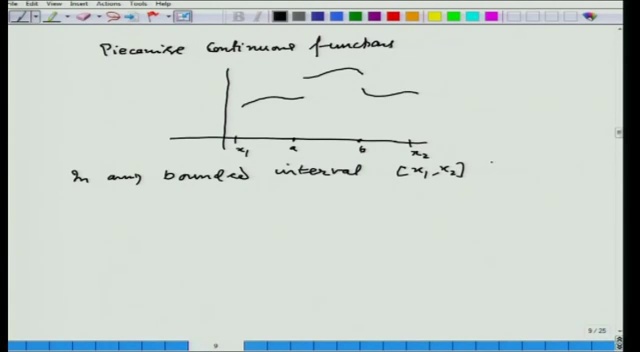 File Edit View Insert Actions Tools Help
Piecewise Continuous functions
x1 a b x2
In any bounded interval [x1, x2]
9 / 25
9